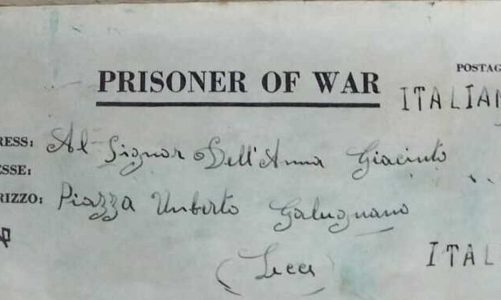 POSTAG
PRISONER OF WAR
ITALIAN
RESS: Al Signor Dell'Anna Giacinto
ESSE:
RIZZO: Piazza Umberto Galugnano
(Lecce)
ITAL